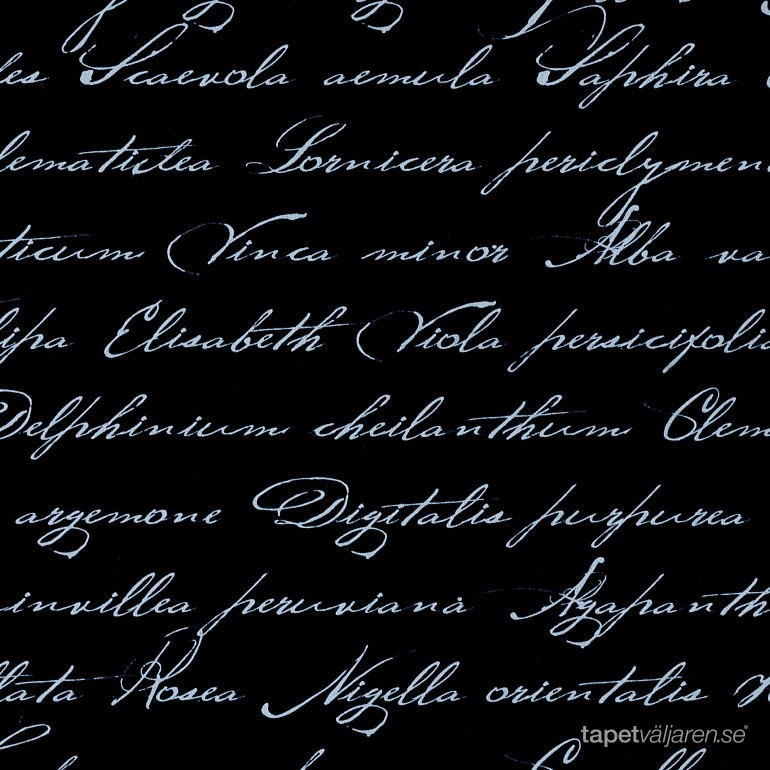 les Scaevola aemula Saphira
lematislea Lornicera periclymen
ticum Vinca minor Alba va
lipa Elisabeth Viola persicifolia
Delphinium cheilanthum Clem
argemone Digitalis purpurea
invillea peruviana Agapanth
llata Rosea Nigella orientalis
tapetväljaren.se